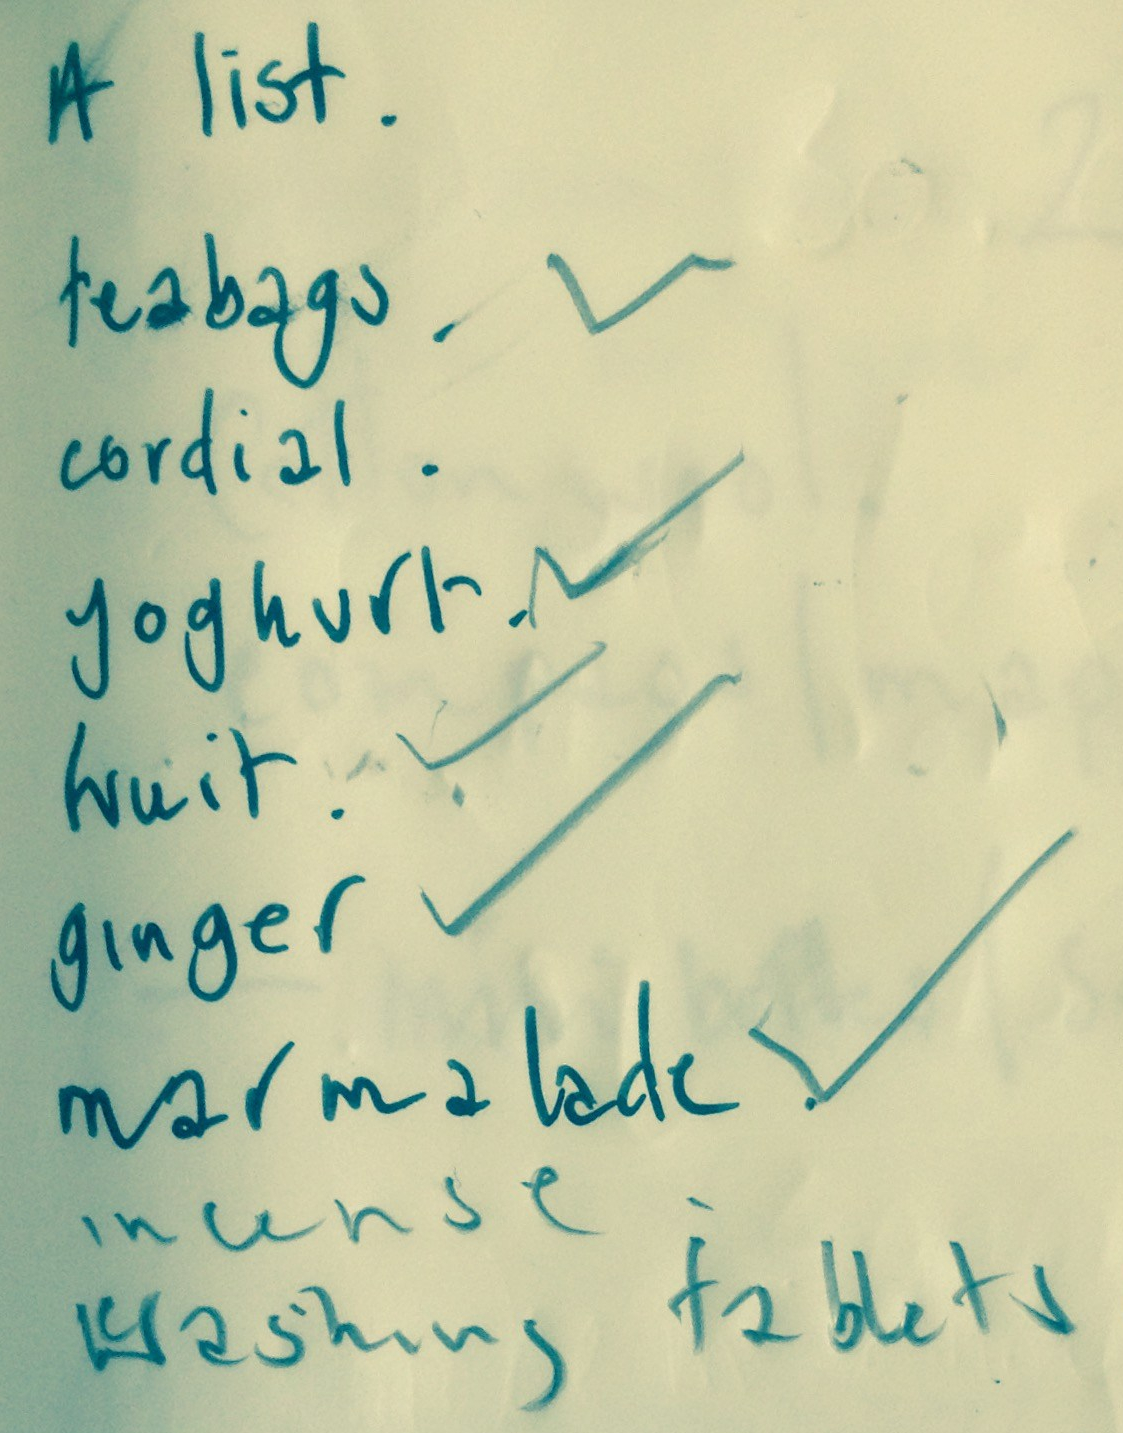 A list.
teabags. ✓
cordial.
yoghurt. ✓
fruit. ✓
ginger ✓
marmalade. ✓
incense
washing tablets